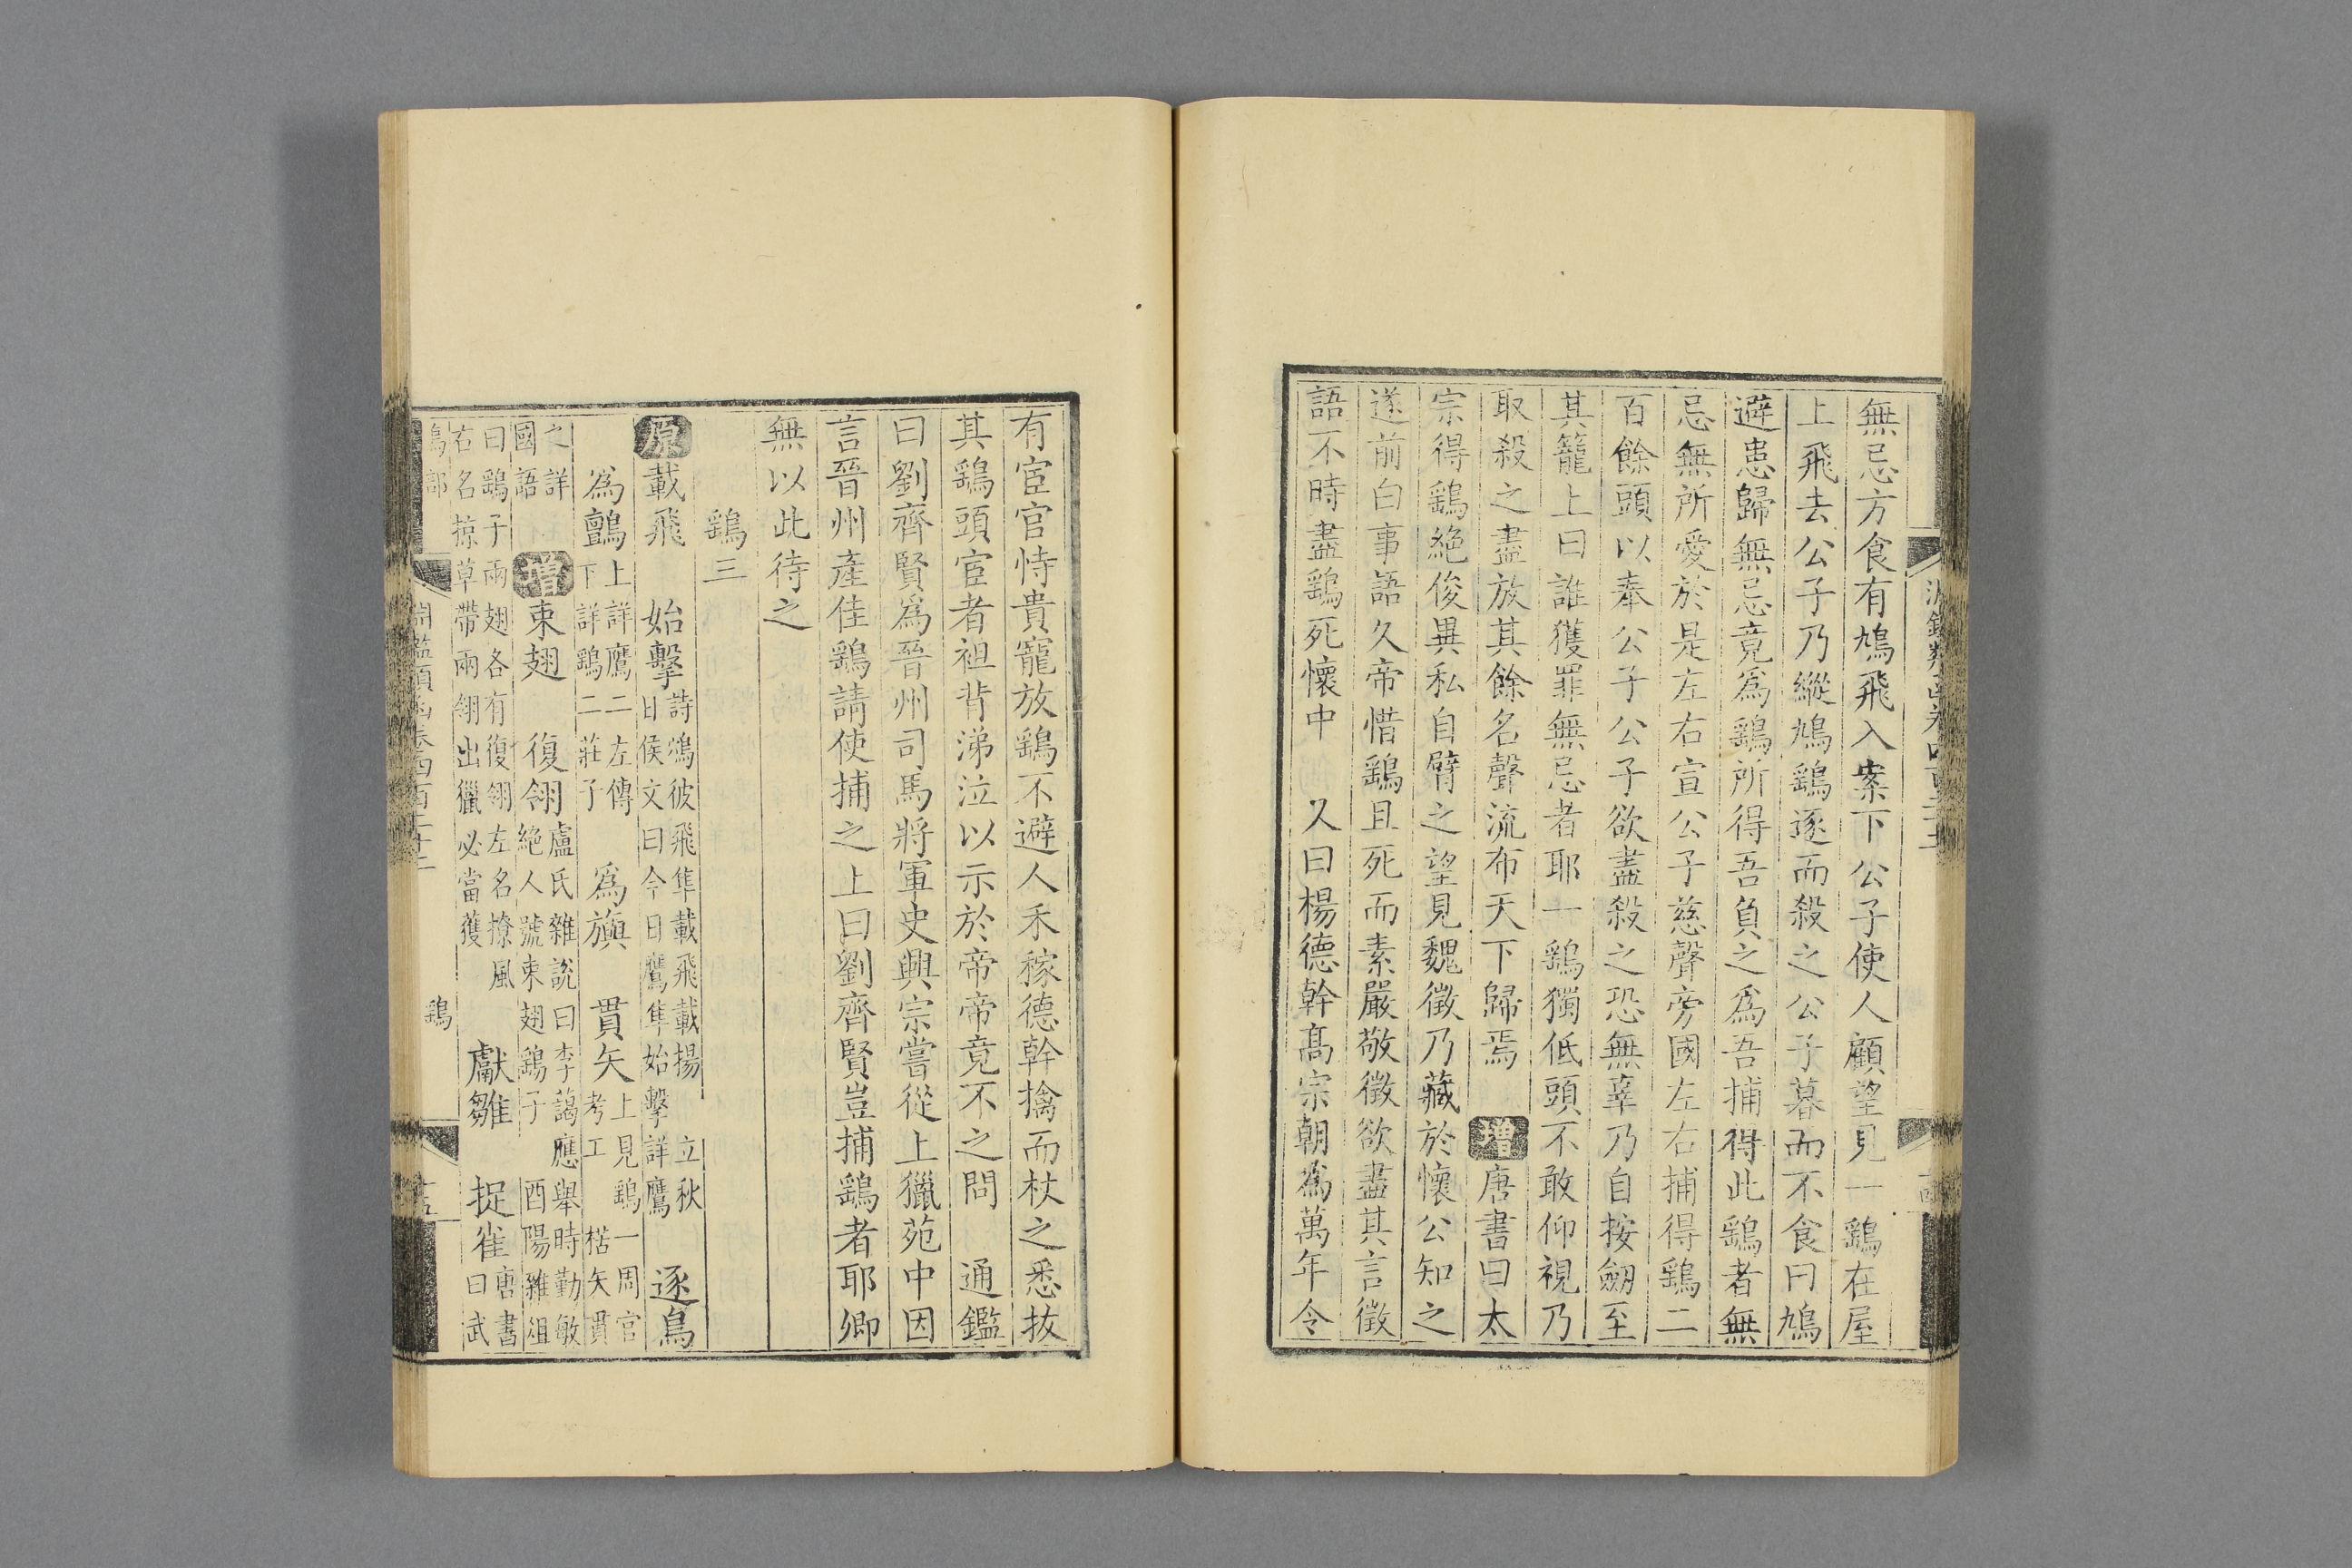 無忌方食有鳩飛入案下公子使人顧望見一鷂在屋
上飛去公子乃縱鳩鷂逐而殺之公子暮而不食曰鳩
避患歸無忌竟爲鷂所得吾負之爲吾捕得此鷂者無
忌無所愛於是左右宣公子慈聲旁國左右捕得鷂二
百餘頭以奉公子公子欲盡殺之恐無辜乃自按劒至
其籠上曰誰獲罪無忌者耶一鷂獨低頭不敢仰視乃
取殺之盡放其餘名聲流布天下歸焉 增唐書曰太
宗得鷂絶俊異私自臂之望見魏徵乃藏於懷公知之
遂前白事語久帝惜鷂且死而素嚴敬徵欲盡其言徵
語不時盡鷂死懷中 又曰楊德幹髙宗朝爲萬年令
有宦官恃貴寵放鷂不避人禾稼德幹擒而杖之悉拔
其鷂頭宦者袒背涕泣以示於帝帝竟不之問 通鑑
曰劉齊賢爲晉州司馬將軍史興宗嘗從上獵苑中因
言晉州產佳鷂請使捕之上曰劉齊賢豈捕鷂者耶卿
無以此待之
鷂三
原載飛 始擊詩鴥彼飛隼載飛載揚 立秋日侯文曰今日鷹隼始擊詳鷹 逐鳥
爲鸇上詳鷹二左傳下詳鷂二莊子 爲旟 貫矢上見鷂一周官考工 楛矢貫
之詳國語 增束翅 復翎盧氏雜説曰李藹應舉時勤敏絶人號束翅鷂子 酉陽雜俎
曰鷂子兩翅各有復翎左名撩風右名掠草帶兩翎出獵必當獲 獻雛 捉雀唐書曰武
鳥部 淵鑑類函卷四百二十二 鷂